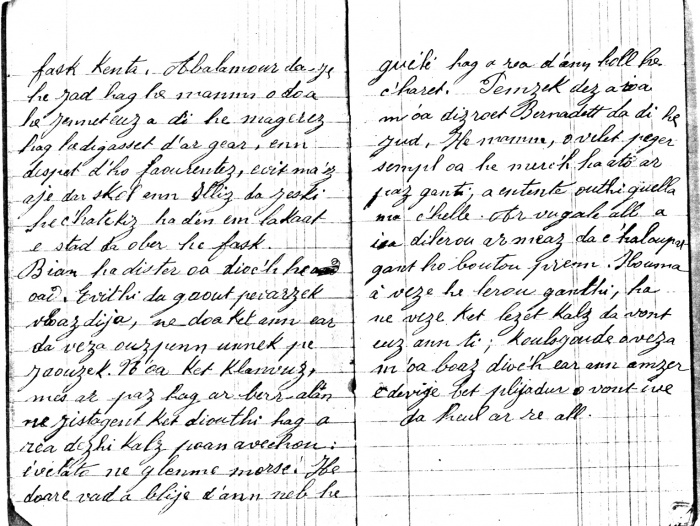 fask kenta. Abalamour da-ze
he zad hag he mamm o doa
he zennet euz a di he magerez
hag he digasset d'ar gear, enn
despet d'ho faourentez, evit ma'z
aje dar skol enn Iliz da zeski
he c'hatekiz ha d'en em lakaat
e stad da ober he fask.
Bian ha dister oa dioc'h he
oad. Evithi da gaout pevarzek
vloaz dija, ne doa ket ann ear
da veza ouzpenn unnek pe
zaouzek. N'oa ket klanvuz,
mes ar paz hag ar berr-alan
ne zistagent ket diouthi hag a
rea dezhi kalz poan avechou:
evelato ne glemme morse. He
doare vad a blije d'ann neb he
guele hag a rea d'ann holl he
c'haret. Pemzek dez a ioa
m'oa dizroet Bernadett da di he
zud. He mamm, o velet peger
sempl oa he merc'h hag ato ar
paz ganti, a entente outhi guella
ma c'helle. Ar vugale all a
iea dilerou ar meaz da c'haloupat
gant ho boutou prenn. Houma
a veze he lerou ganthi, ha
ne veze ket lezet kalz da vont
euz ann ti; koulsgoude o veza
m'oa boaz dioc'h ear ann amzer
e devije bet plijadur o vont ive
da heul ar re all.